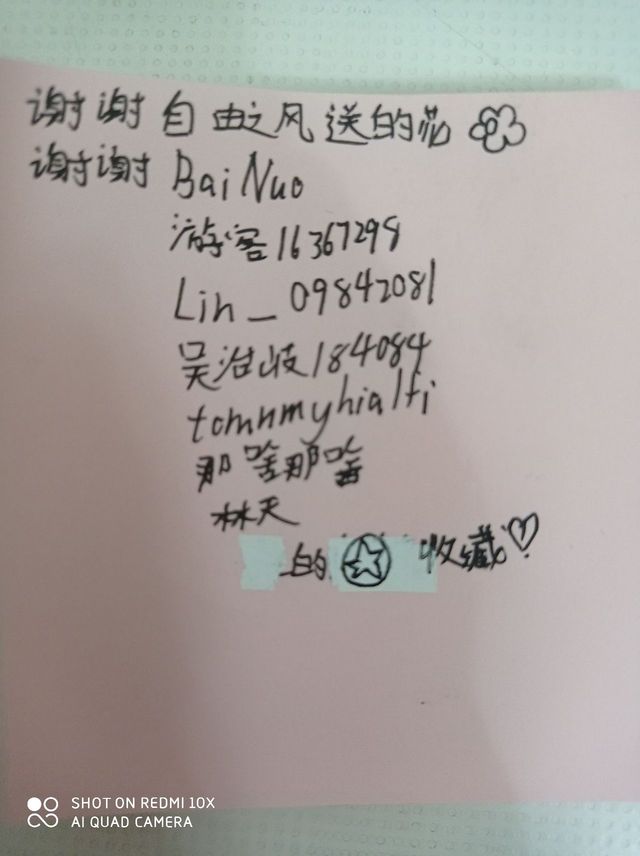 谢谢自由之风送的花
谢谢 BaiNuo
游客16367298
Lin_09842081
吴治歧184084
tomnmyhialti
那啥那啥
林天
的 收藏
SHOT ON REDMI 10X
AI QUAD CAMERA